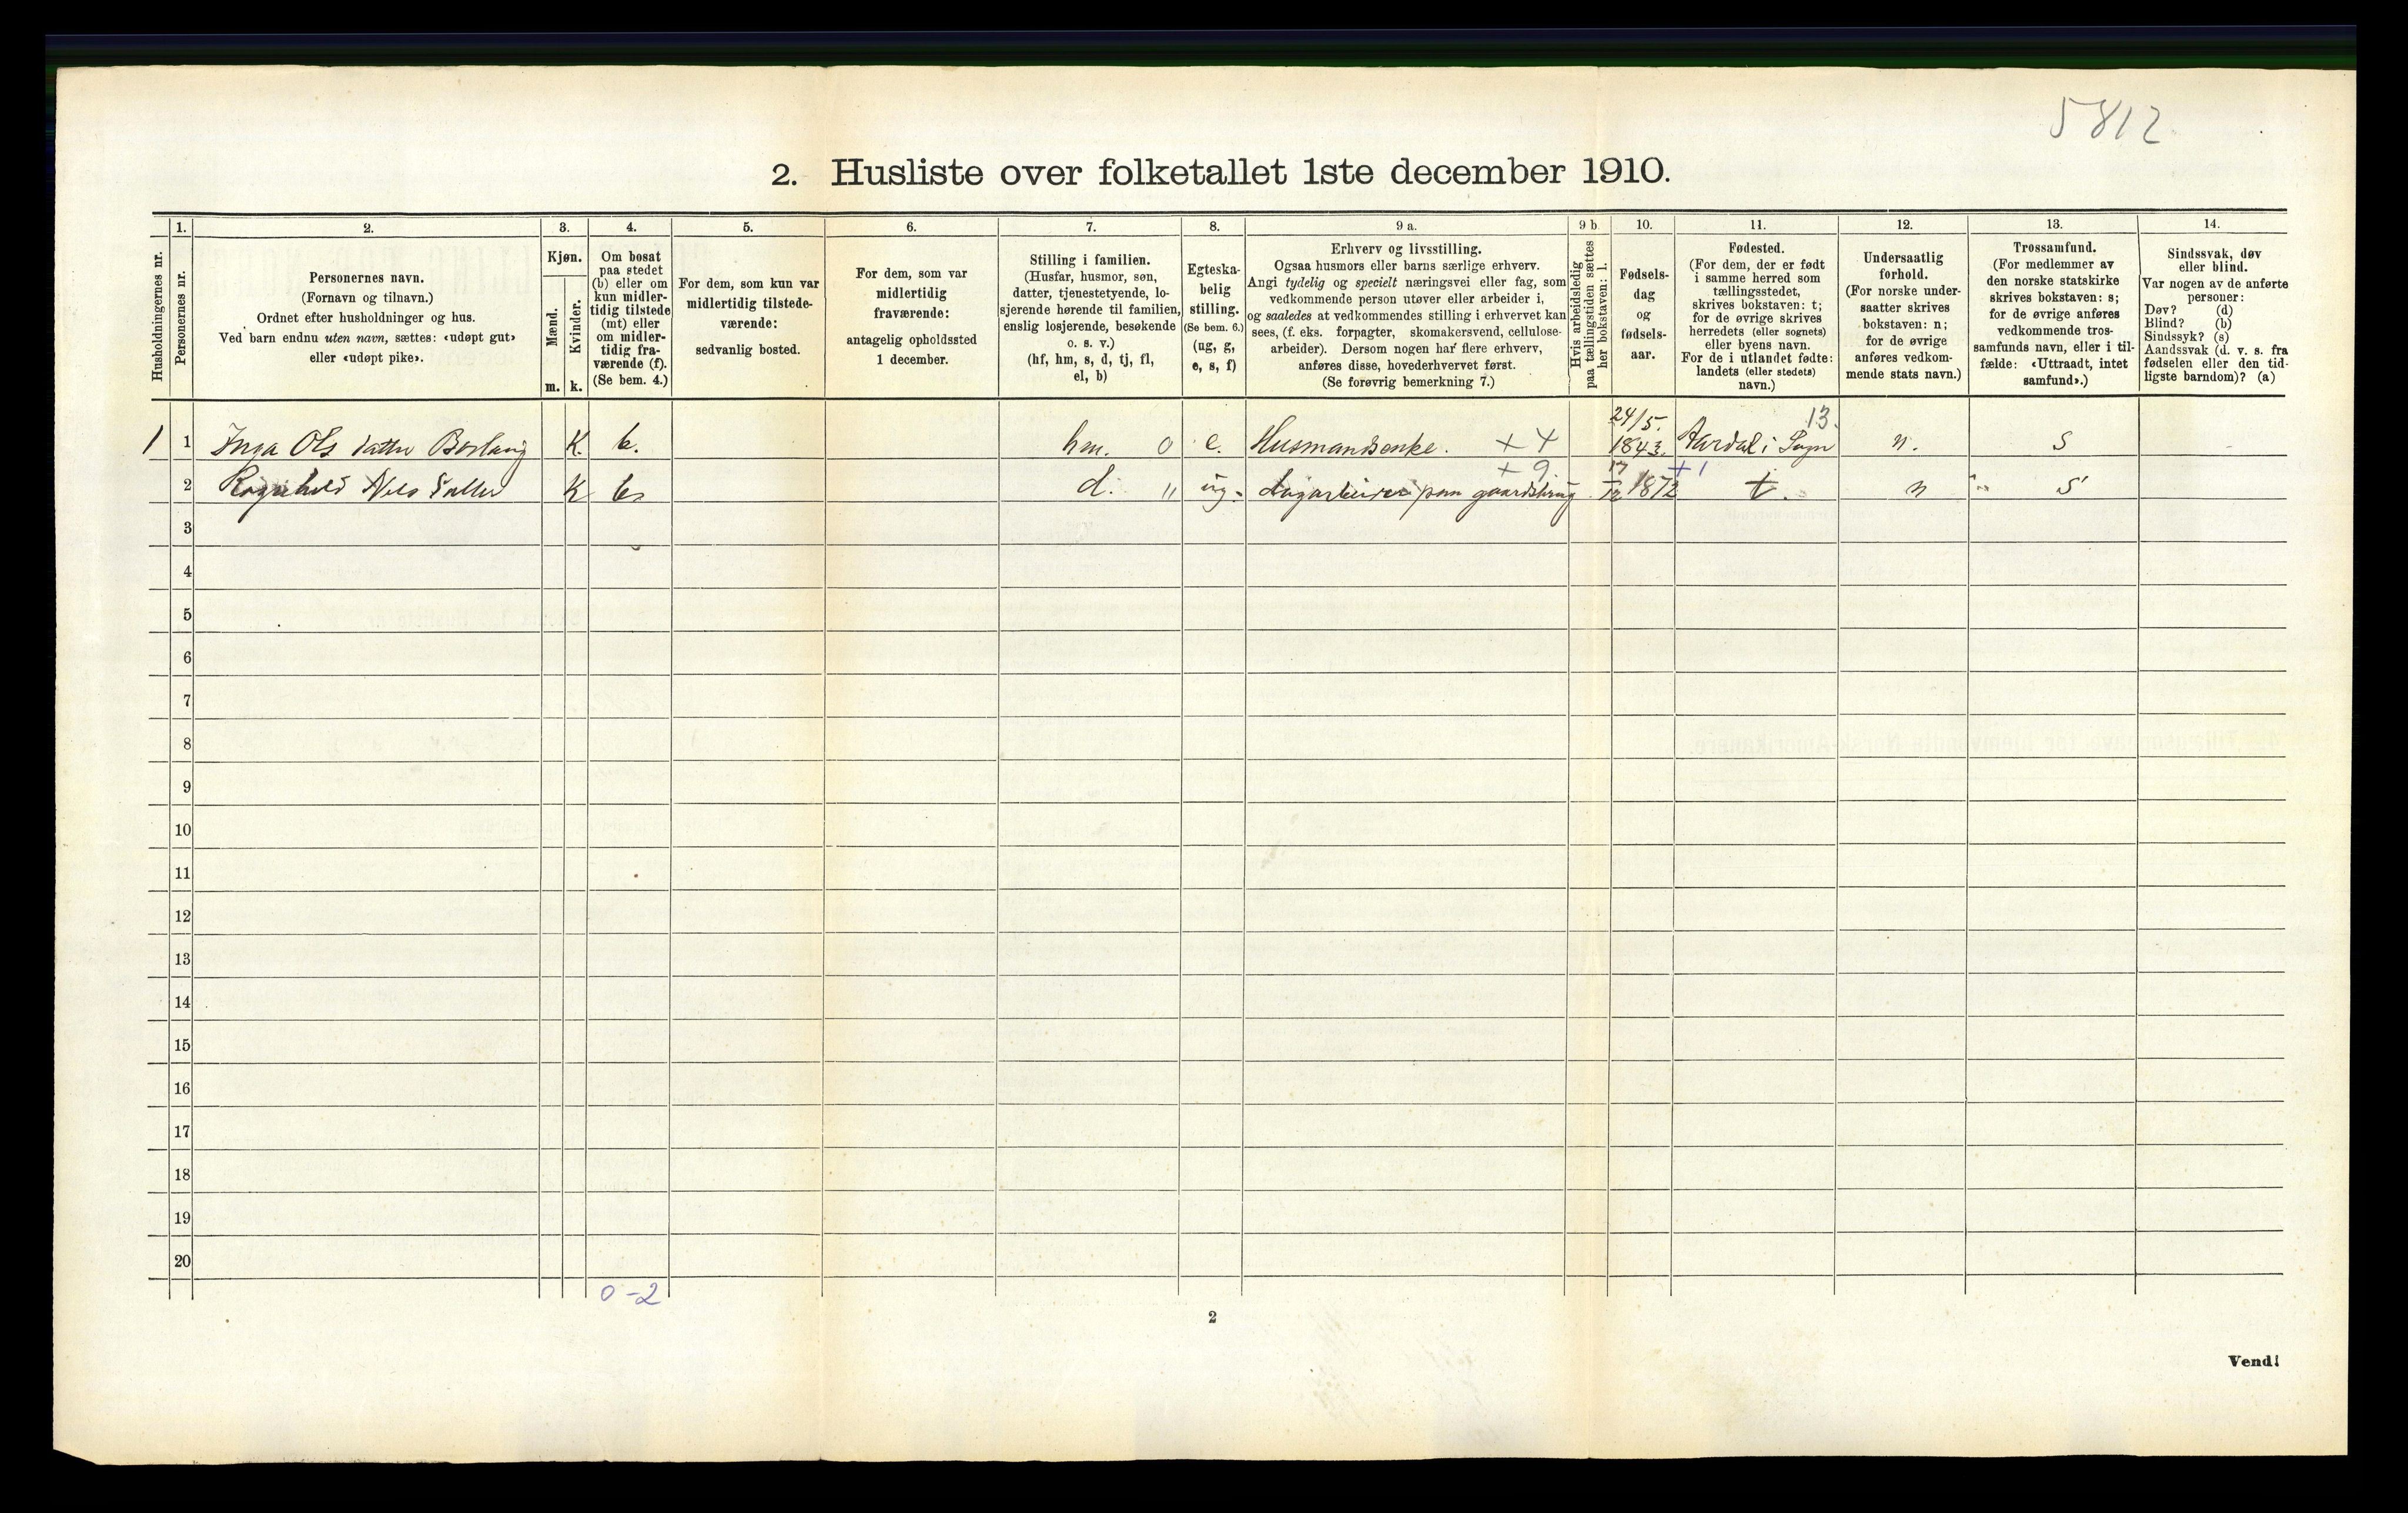 5812
2. Husliste over folketallet 1ste december 1910.
1. 2. 3. 4. 5. 6. 7. 8. 9 a. 9 b. 10. 11. 12. 13. 14.
Husholdningernes nr.
Personernes nr.
Personernes navn.
(Fornavn og tilnavn.)
Ordnet efter husholdninger og hus.
Ved barn endnu uten navn, sættes: «udøpt gut»
eller «udøpt pike».
Kjøn.
Mænd.
Kvinder.
m. k.
Om bosat
paa stedet
(b) eller om
kun midler-
tidig tilstede
(mt) eller
om midler-
tidig fra-
værende (f).
(Se bem. 4.)
For dem, som kun var
midlertidig tilstede-
værende:
sedvanlig bosted.
For dem, som var
midlertidig
fraværende:
antagelig opholdssted
1 december.
Stilling i familien.
(Husfar, husmor, søn,
datter, tjenestetyende, lo-
sjerende hørende til familien,
enslig losjerende, besøkende
o. s. v.)
(hf, hm, s, d, tj, fl,
el, b)
Egteska-
belig
stilling.
(Se bem. 6.)
(ug, g,
e, s, f)
Erhverv og livsstilling.
Ogsaa husmors eller barns særlige erhverv.
Angi tydelig og specielt næringsvei eller fag, som
vedkommende person utøver eller arbeider i,
og saaledes at vedkommendes stilling i erhvervet kan
sees, (f. eks. forpagter, skomakersvend, cellulose-
arbeider). Dersom nogen har flere erhverv,
anføres disse, hovederhvervet først.
(Se forøvrig bemerkning 7.)
Hvis arbeidsledig
paa tællingstiden sættes
her bokstaven: l.
Fødsels-
dag
og
fødsels-
aar.
Fødested.
(For dem, der er født
i samme herred som
tællingsstedet,
skrives bokstaven: t;
for de øvrige skrives
herredets (eller sognets)
eller byens navn.
For de i utlandet fødte:
landets (eller stedets)
navn.)
Undersaatlig
forhold.
(For norske under-
saatter skrives
bokstaven: n;
for de øvrige
anføres vedkom-
mende stats navn.)
Trossamfund.
(For medlemmer av
den norske statskirke
skrives bokstaven: s;
for de øvrige anføres
vedkommende tros-
samfunds navn, eller i til-
fælde: «Uttraadt, intet
samfund».)
Sindssvak, døv
eller blind.
Var nogen av de anførte
personer:
Døv? (d)
Blind? (b)
Sindssyk? (s)
Aandssvak (d. v. s. fra
fødselen eller den tid-
ligste barndom)? (a)
24/5. 13.
1 1 Inga Ols datter K. b. hm. 0 e. Husmandsenke. + 4 1843. Aardal i Sogn n. s
+ 9. 17 + 1
2 Ragnhild Nils datter K b d. " ug. dagarbeider paa gaardsbrug 12 1872 t. n s
3
4
5
6
7
8
9
10
11
12
13
14
15
16
17
18
19
20
0 - 2
2
Vend!